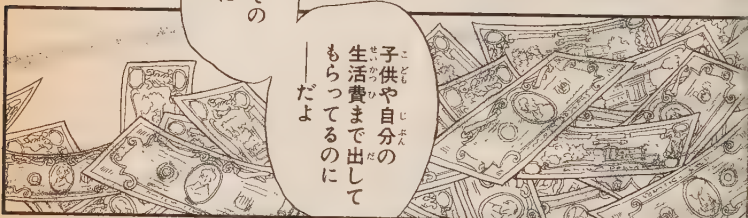 その
子供や自分の
生活費まで出して
もらってるのに
――だよ